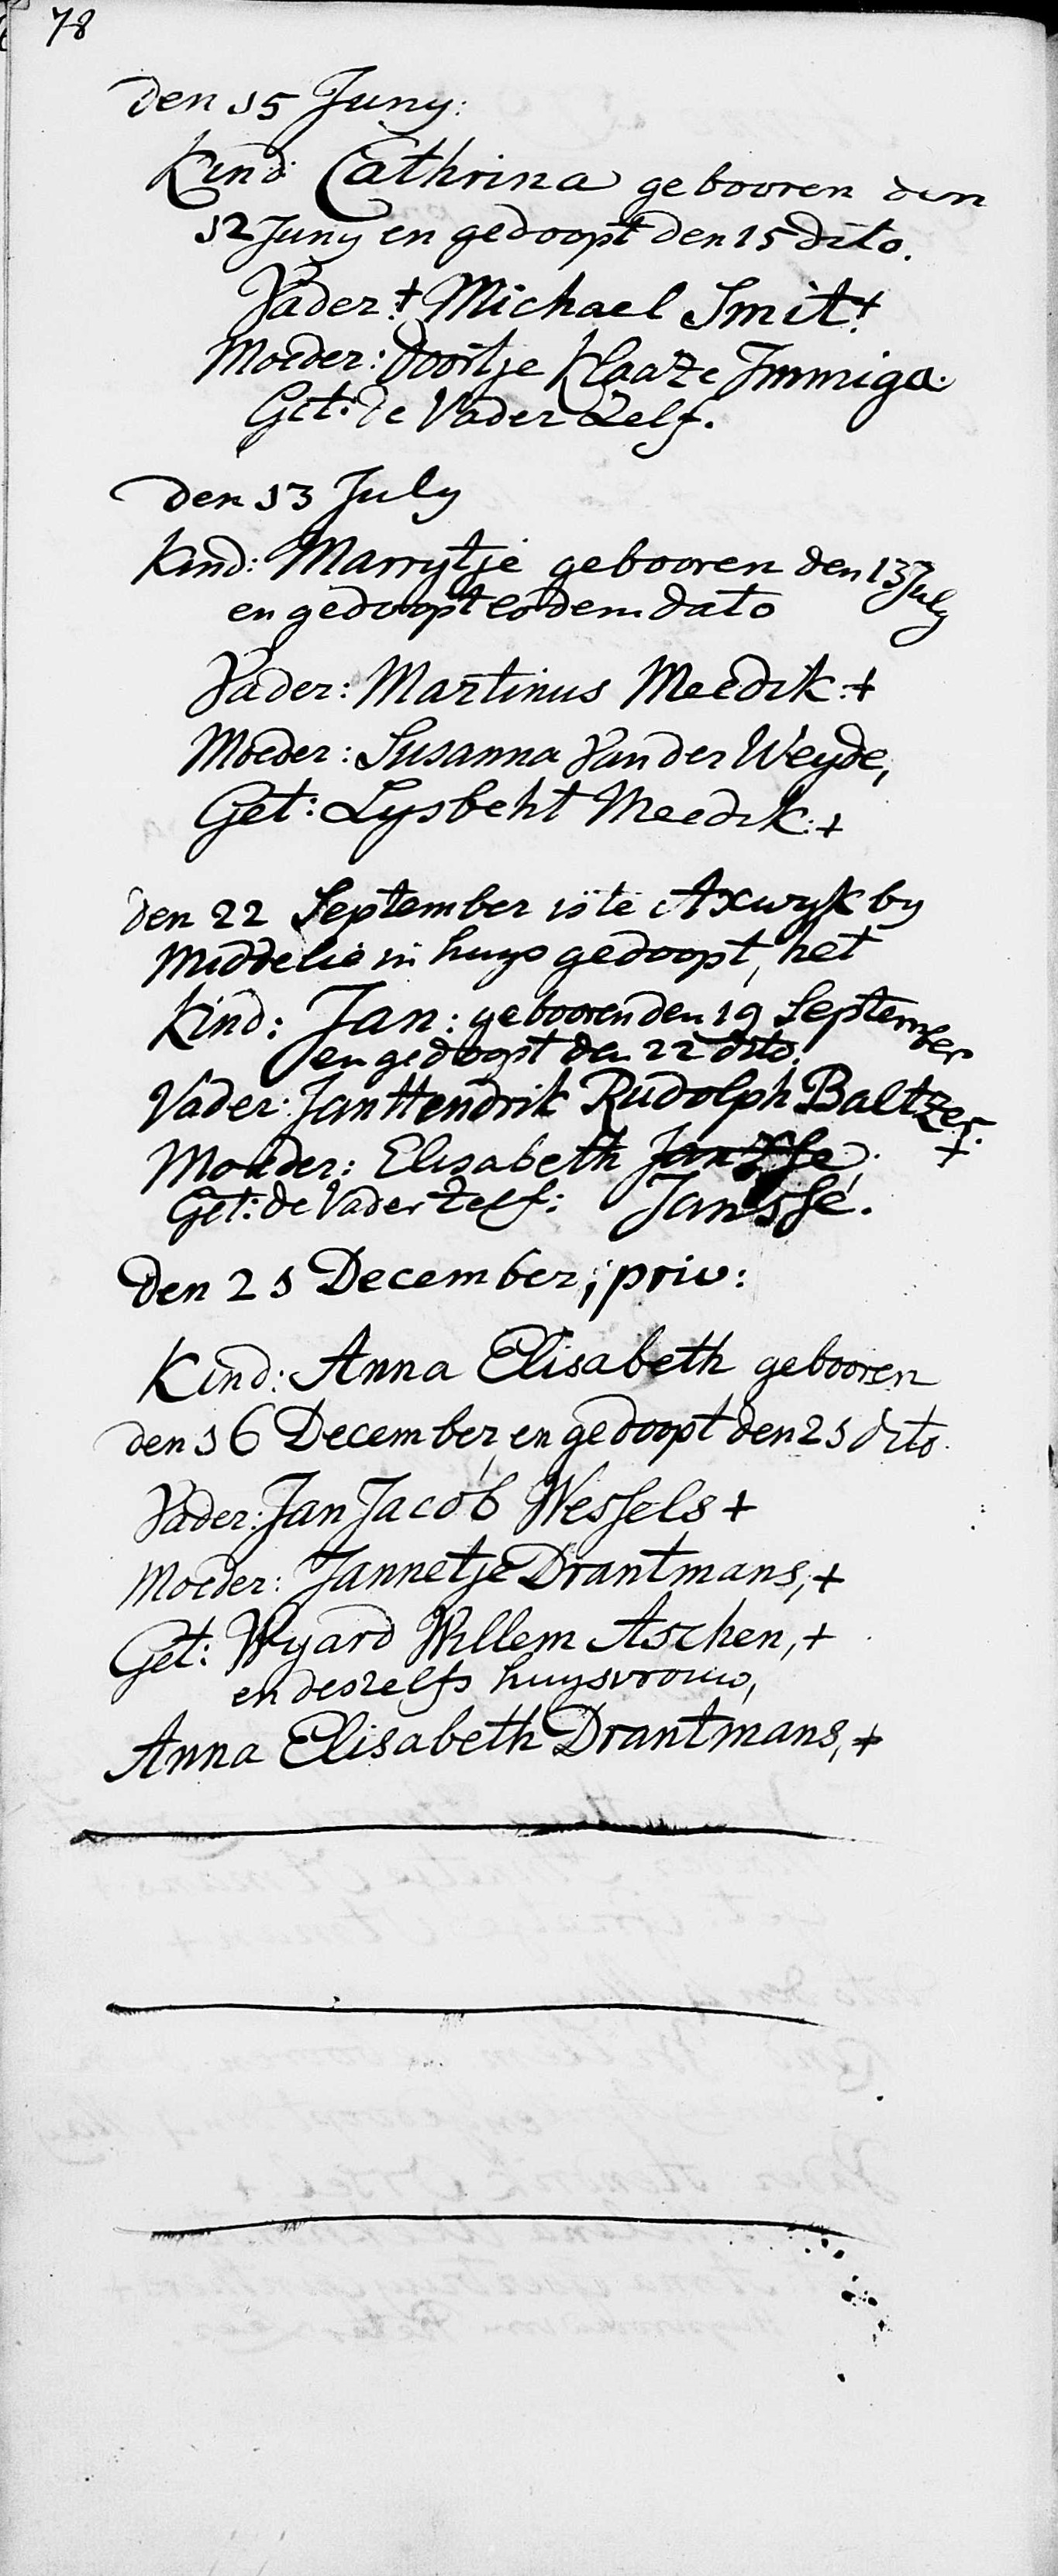 78
den 15 Juny:
Kind Cathrina gebooren den
12 Juny en gedoopt den 15 dito.
Vader + Michael Smit +
Moeder: Doortje Klaaze Immiga.
Get: de Vader Zelf.
den 13 July
Kind: Marrytje gebooren den 13 July
en gedoopt eodem dato
Vader: Martinus Meedik: +
Moeder: Susanna Van der Weyde,
Get: Lysbeht Meedik: +
den 22 September is te Axwyk by
Middelie in huys gedoopt, het
Kind: Jan: gebooren den 19 September
en gedoopt den 22 dito.
Vader: Jan Hendrik Rudolph Baltzer. +
Moeder: Elisabeth Janssé.
Get: de Vader Zelf: Janssé.
den 21 December; priv:
Kind: Anna Elisabeth gebooren
den 16 December, en gedoopt den 21 dito
Vader: Jan Jacob Wessels +
Moeder: Jannetje Drantmans, +
Get: Wyard Willem Aschen, +
en deszelfs huysvrouw,
Anna Elisabeth Drantmans, +